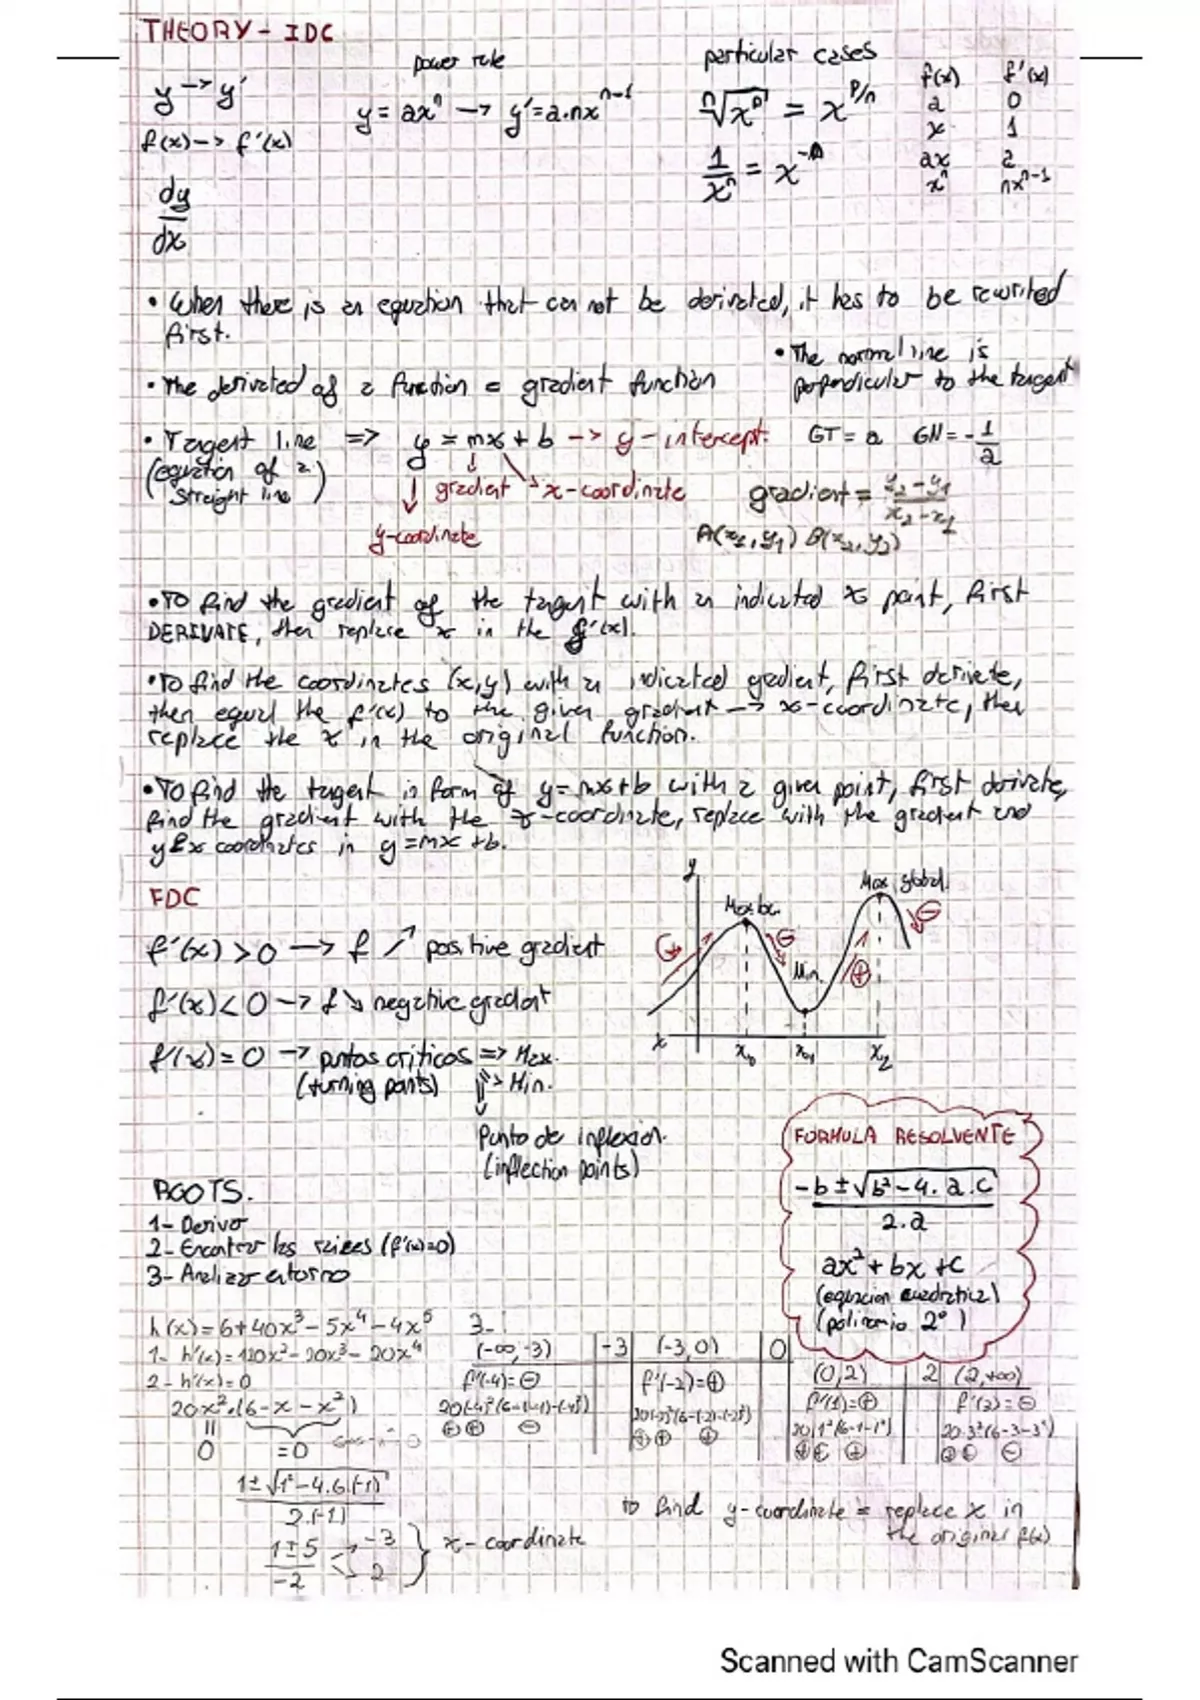 THEORY - IDC
power rule
particular cases
y → y'
y = axⁿ → y' = a.nxⁿ⁻¹
ⁿ√xᵖ = x^p/n
f(x) f'(x)
a 0
x 1
ax a
xⁿ nxⁿ⁻¹
f(x) → f'(x)
1/xⁿ = x⁻ⁿ
dy/dx
• When there is an equation that can not be derivated, it has to be rewrited
first.
• The normal line is
perpendicular to the tangent
• The derivated of a function = gradient function
• Tangent line => y = mx + b → y-intercept.
(equation of a
straight line)
gradient x-coordinate
y-coordinate
GT = a GN = -1/a
gradient = y₂-y₁/x₂-x₁
A(x₁,y₁) B(x₂,y₂)
• TO find the gradient of the tangent with an indicated x point, first
DERIVATE, then replace x in the f'(x).
• To find the coordinates (x,y) with an indicated gradient, first derivate,
then equal the f'(x) to the given gradient → x-coordinate, then
replace the x in the original function.
• TO find the tangent in form of y=mx+b with a given point, first derivate,
find the gradient with the x-coordinate, replace with the gradient and
y & x coordinates in y=mx+b.
FDC
f'(x) > 0 → f ↗ positive gradient
f'(x) < 0 → f ↘ negative gradient
f'(x) = 0 → puntos criticos => Max.
(turning points) => Min.
Punto de inflexion.
(inflection points)
y
Max loc.
Max global.
Min.
x x₀ x₁ x₂
FORMULA RESOLVENTE
-b±√b²-4.a.c
2.a
ax²+bx+c
(equacion cuadratica)
(polinomio 2°)
ROOTS.
1- Derivo
2- Encontrar las raices (f'(x)=0)
3- Analizar entorno
h(x) = 6+40x³-5x⁴-4x⁵
1- h'(x) = 120x²-20x³-20x⁴
2- h'(x)=0
20x².(6-x-x²)
0 =0
1±√1²-4.6.(-1)
2.(-1)
1±5
-2
-3
2
x-coordinate
3-
(-∞,-3) -3 (-3,0) 0 (0,2) 2 (2,+∞)
f'(-4)=⊖ f'(-2)=⊕ f'(1)=⊕ f'(3)=⊖
20(-4)²(6-(-4)-(-4)²) 20(-2)²(6-(-2)-(-2)²) 20.1²(6-1-1²) 20.3²(6-3-3²)
to find y-coordinate = replace x in
the original f(x)
Scanned with CamScanner